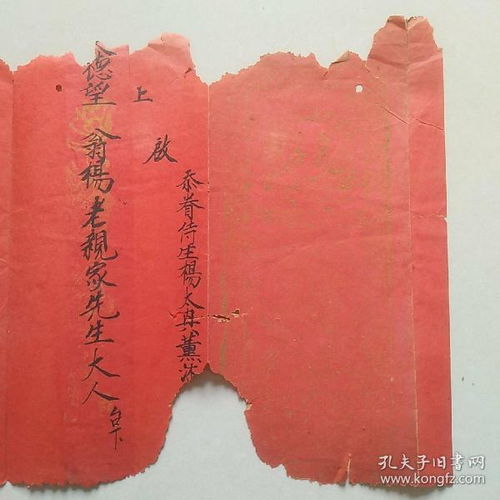 忝眷侍生楊太薰沐
上啟
德望翁楊老親家先生大人台下
孔夫子旧书网
www.kongfz.com